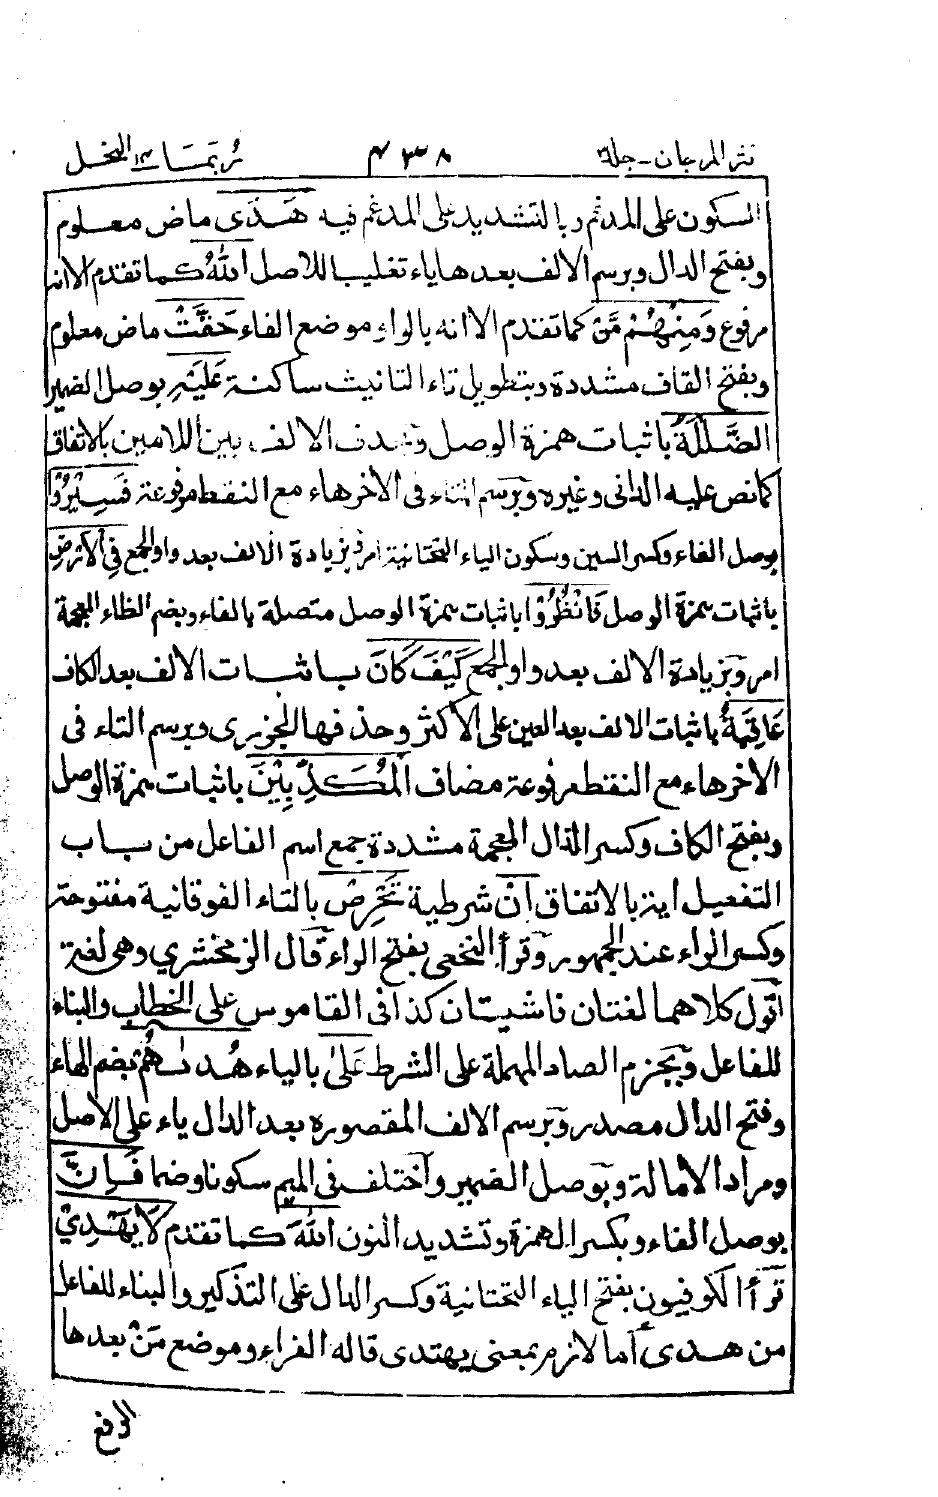 نثر المرجان - جلد٣ ٣٣٨ ربما ١٤ النحل
السكون على المدغم وبالتشديد على المدغم فيه هَدَى ماض معلوم
وبفتح الدال وبرسم الالف بعدها ياء تغليبا للاصل اللّٰهُ كما تقدم الا انه
مرفوع وَمِنْهُمْ مَّنْ كما تقدم الا انه بالواو موضع الفاء حَقَّتْ ماض معلوم
وبفتح القاف مشددة وبتطويل تاء التانيث ساكنة عَلَيْهِ بوصل الضمير
الضَّلٰلَةُ باثبات همزة الوصل وبحذف الالف بين اللامين بالاتفاق
كما نص عليه الدانى وغيره وبرسم التاء فى الآخر هاء مع النقط مرفوعة فَسِيْرُوْا
بوصل الفاء وكسر السين وسكون الياء التحتانية امر وبزيادة الالف بعد واو الجمع فِى الْاَرْضِ
باثبات همزة الوصل فَانْظُرُوْا باثبات همزة الوصل متصلة بالفاء وبضم الظاء المعجمة
امر وبزيادة الالف بعد واو الجمع كَيْفَ كَانَ باثبات الالف بعد الكاف
عَاقِبَةُ باثبات الالف بعد العين على الاكثر وحذفها الجزرى وبرسم التاء فى
الآخر هاء مع النقط مرفوعة مضاف الْمُكَذِّبِيْنَ باثبات همزة الوصل
وبفتح الكاف وكسر الذال المعجمة مشددة جمع اسم الفاعل من باب
التفعيل ايتز بالاتفاق اِنْ شرطية تَحْرِصْ بالتاء الفوقانية مفتوحة
وكسر الراء عند الجمهور وقرأ النخعى بفتح الراء قال الزمخشري وهى لغة
اقول كلاهما لغتان فاشيتان كذا فى القاموس على الخطاب والبناء
للفاعل وبجزم الصاد المهملة على الشرط عَلىٰ بالياء هُدٰىهُمْ بضم الهاء
وفتح الدال مصدر وبرسم الالف المقصورة بعد الدال ياء على الاصل
ومراد الامالة وبوصل الضمير واختلف فى الميم سكونا وضما فَاِنَّ
بوصل الفاء وبكسر الهمزة وتشديد النون اللّٰهَ كما تقدم لَا يَهْدِيْ
قرأ الكوفيون بفتح الياء التحتانية وكسر الدال على التذكير والبناء للفاعل
من هدى أما لازم بمعنى يهتدى قاله الفراء وموضع مَنْ بعدها
الرفع